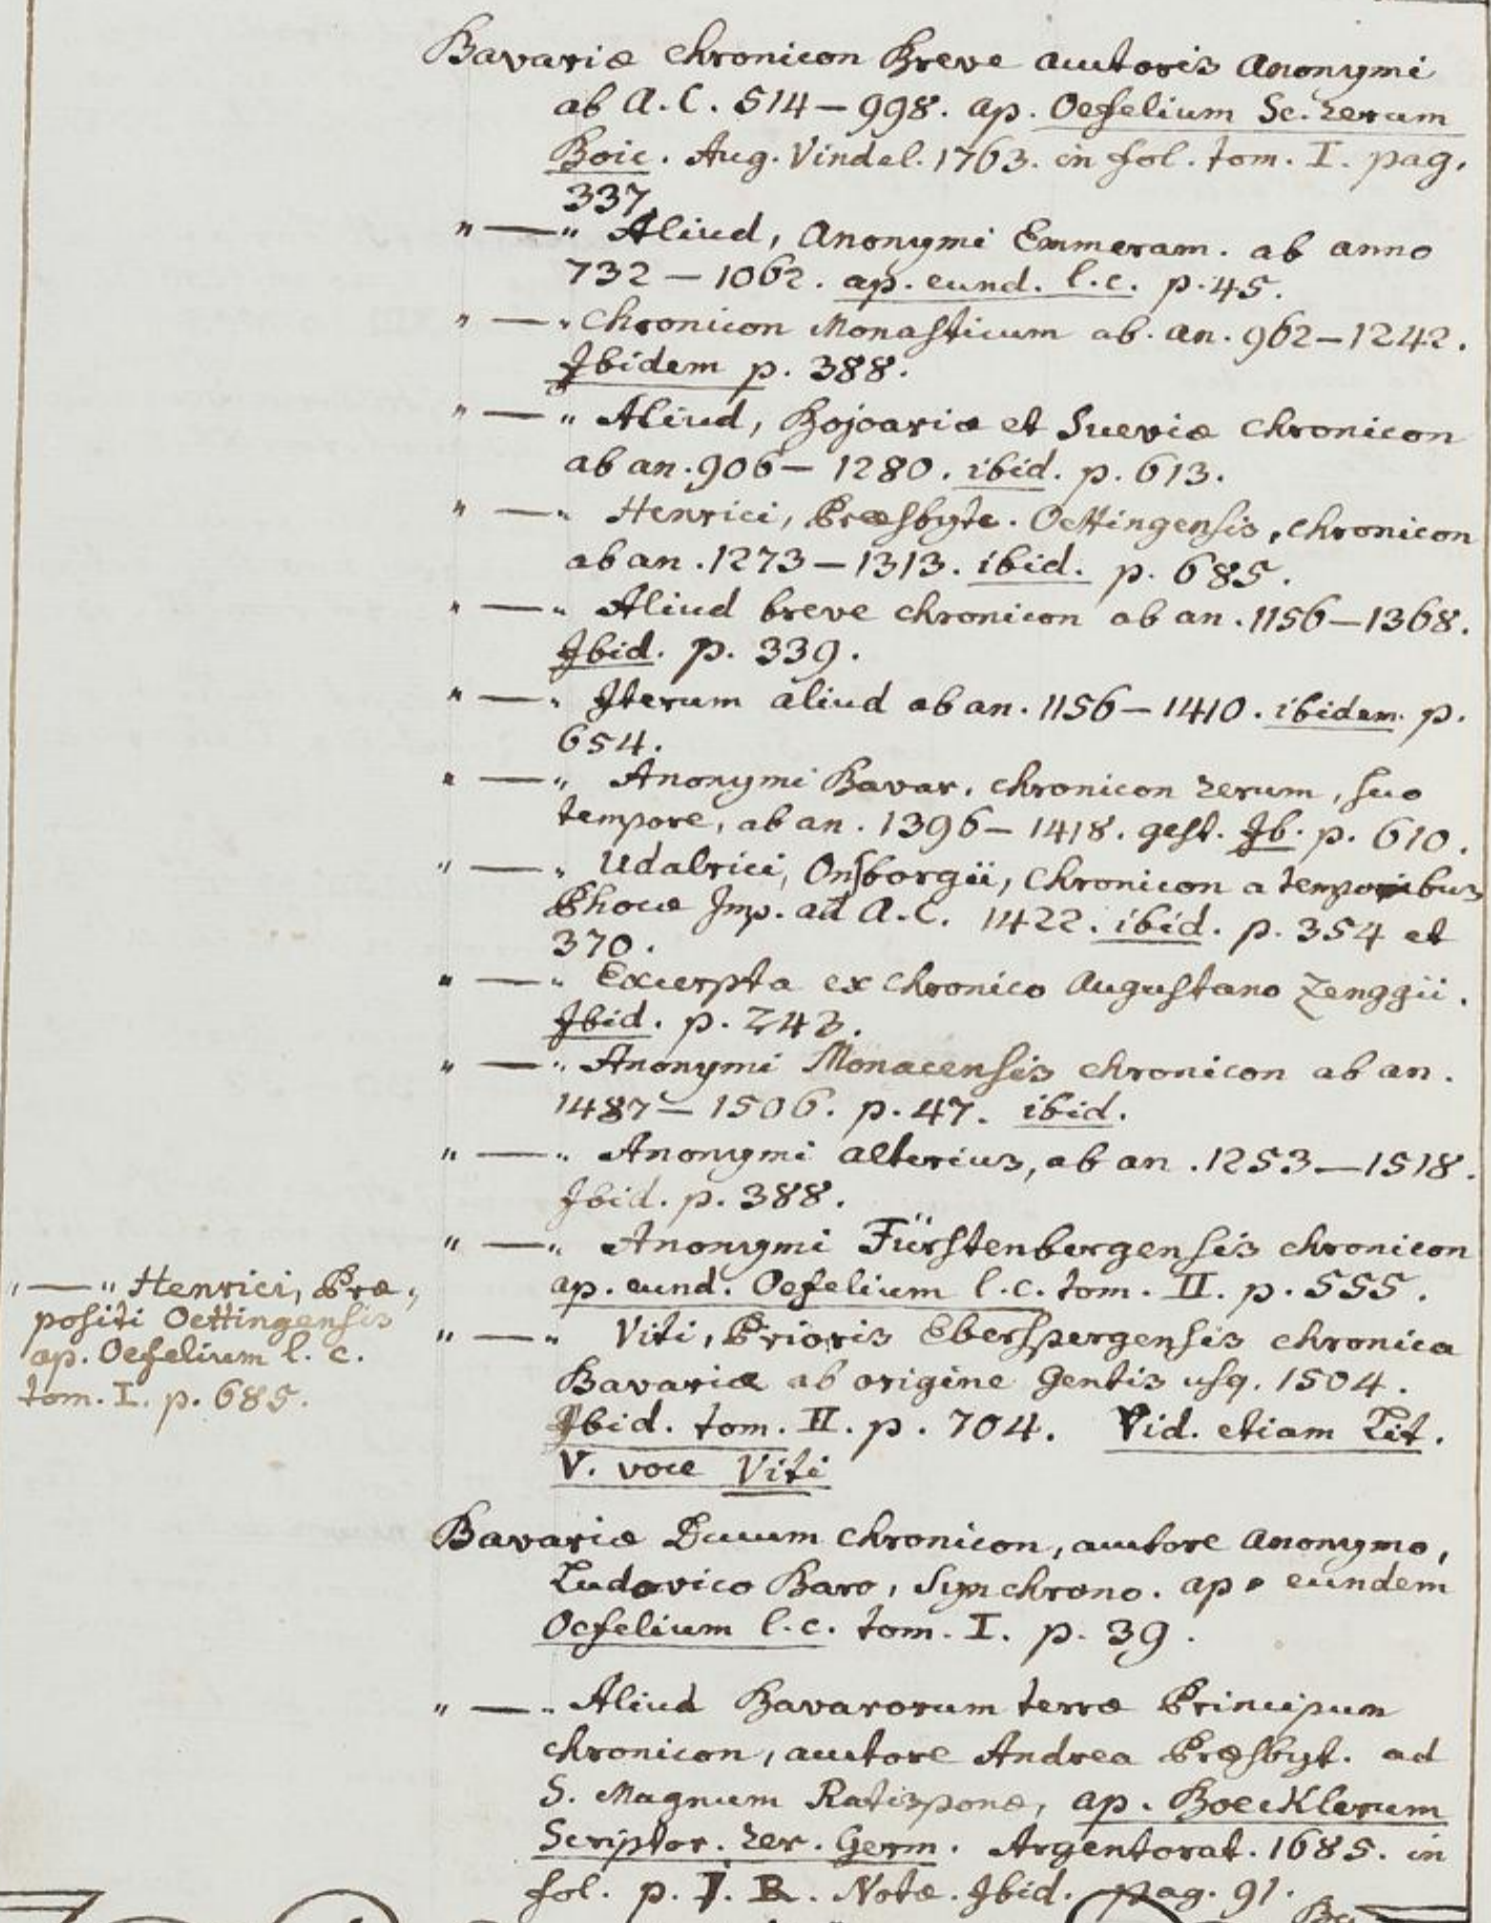 Bavariæ chronicon Breve autoris Anonymi
ab A. C. 514 — 998. ap. Oefelium Sc. rerum
Boic. Aug. Vindel. 1763. in fol. tom. I. pag.
337.
" — " Aliud, Anonymi Emmeram. ab anno
732 — 1062. ap. eund. l. c. p. 45.
" — " Chronicon Monasticum ab. an. 962 — 1242.
Ibidem p. 388.
" — " Aliud, Bojoariæ et Sueviæ chronicon
ab an. 906 — 1280. ibid. p. 613.
" — " Henrici, Præsbyte. Oettingensis, chronicon
ab an. 1273 — 1313. ibid. p. 685.
" — " Aliud breve chronicon ab an. 1156 — 1368.
Ibid. p. 339.
" — " Iterum aliud ab an. 1156 — 1410. ibidem. p.
654.
" — " Anonymi Bavar. chronicon rerum, suo
tempore, ab an. 1396 — 1418. gest. Ib. p. 610.
" — " Udalrici, Onsborgii, Chronicon a temporibus
Phocæ Imp. ad A. C. 1422. ibid. p. 354 et
370.
" — " Excerpta ex chronico Augustano Zenggii.
Ibid. p. 243.
" — " Anonymi Monacensis chronicon ab an.
1487 — 1506. p. 47. ibid.
" — " Anonymi alterius, ab an. 1253 — 1518.
Ibid. p. 388.
" — " Anonymi Fürstenbergensis chronicon
ap. eund. Oefelium l. c. tom. II. p. 555.
" — " Henrici, Præ,
positi Oettingensis
ap. Oefelium l. c.
tom. I. p. 685.
" — " Viti, Prioris Eberspergensis chronica
Bavariæ ab origine Gentis usq. 1504.
Ibid. tom. II. p. 704. Vid. etiam Lit.
V. voce Viti
Bavariæ Ducum chronicon, autore Anonymo,
Ludovico Baro, Synchrono. ap. eundem
Oefelium l. c. tom. I. p. 39.
" — " Aliud Bavarorum terræ Principum
chronicon, autore Andrea Præsbyt. ad
S. Magnum Ratisponæ, ap. Boecklerum
Scriptor. rer. Germ. Argentorat. 1685. in
fol. p. I. R. Notæ. Ibid. pag. 91.